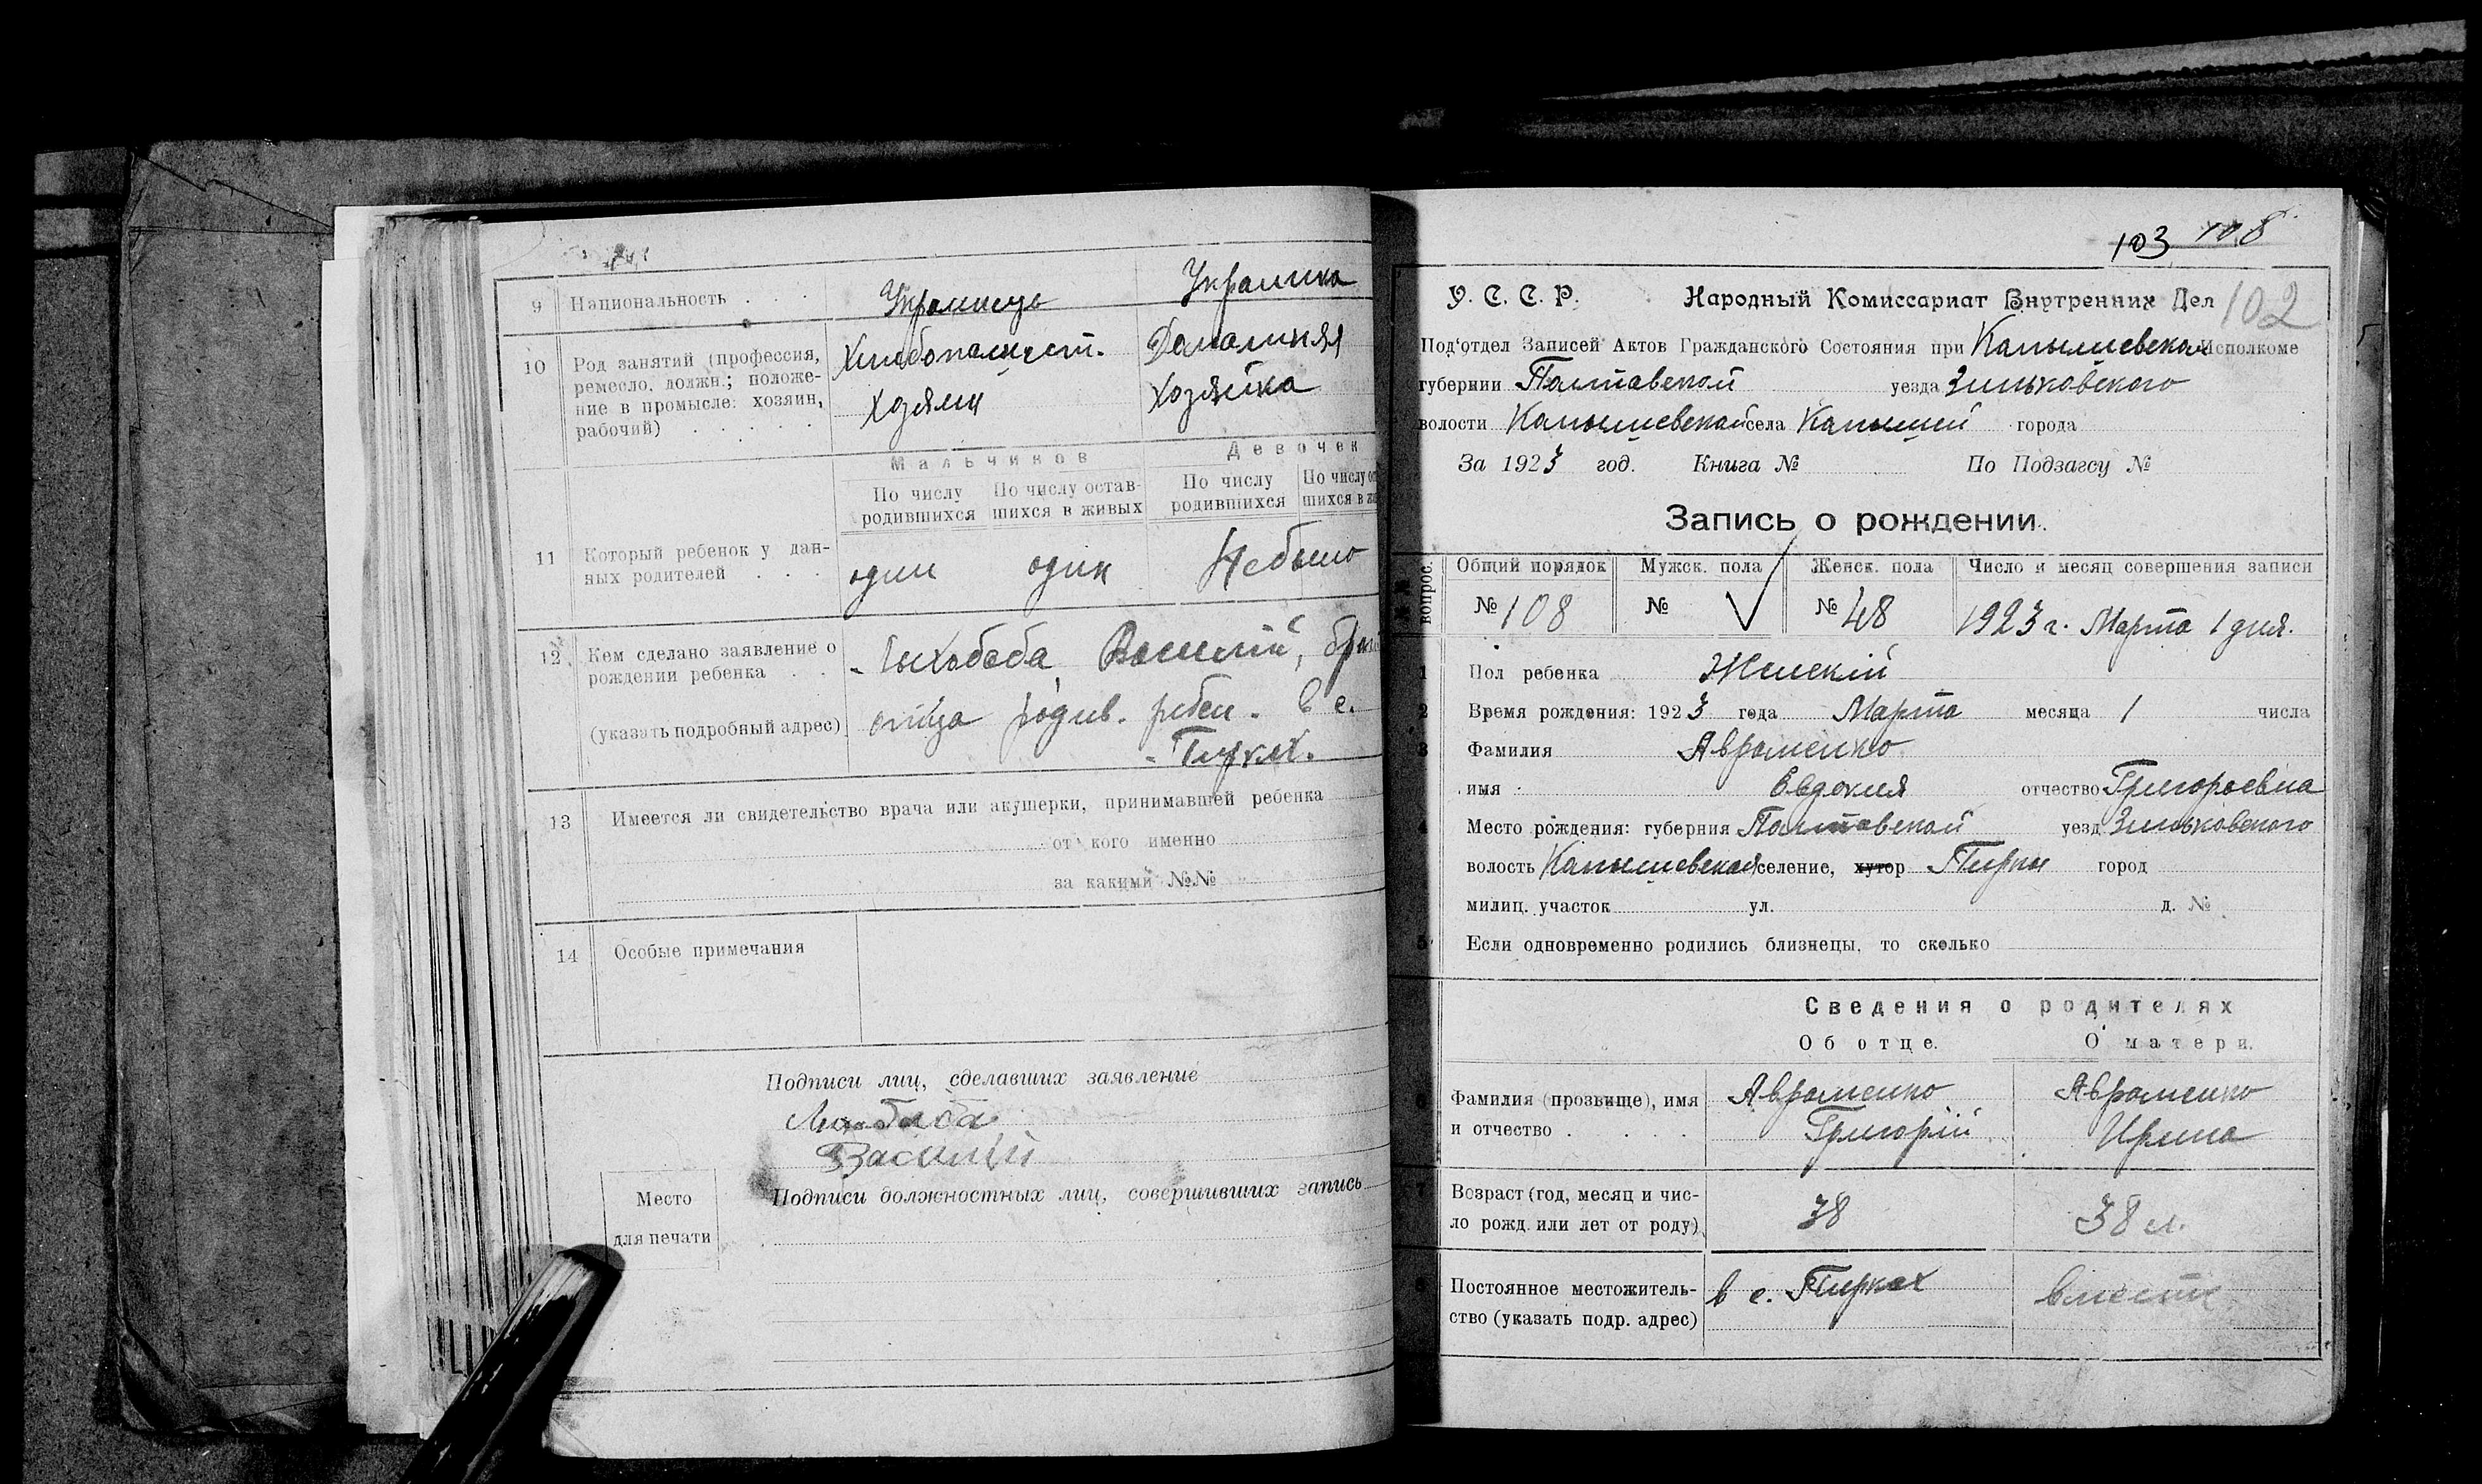 9 Национальность . . . Украинець Украинка
10 Род занятий (профессия, Хлебопашест. Домашняя
ремесло, должн.; положе-
ние в промысле: хозяин, хозяин хозяйка
рабочий) . . . . .
Мальчиков Девочек
По числу По числу остав- По числу По числу
родившихся шихся в живых родившихся шихся в
11 Который ребенок у дан-
ных родителей . . . один один Небыло
12 Кем сделано заявление о Лихобаба Василий,
рождении ребенка . .
(указать подробный адрес) отца родив. ребен. в с.
- Пирках.
13 Имеется ли свидетельство врача или акушерки, принимавшей ребенка
от кого именно
за какими №№
14 Особые примечания
Подписи лиц, сделавших заявление
Лихобаба
Василий
Подписи должностных лиц, совершивших запись
Место
для печати
103 108
У. С. С. Р. Народный Комиссариат Внутренних Дел 102
Под'отдел Записей Актов Гражданского Состояния при Исполкоме
губернии Полтавской уезда Зиньковского
волости Капышевской села Капышей города
За 1923 год. Книга № По Подзагсу №
Запись о рождении.
№№ вопрос. Общий порядок Мужск. пола Женск. пола Число и месяц совершения записи
№ 108 № V № 48 1923 г. Марта 1 дня.
1 Пол ребенка Женский
2 Время рождения: 1923 года Марта месяца 1 числа
3 Фамилия Авраменко
имя Евдокия отчество Григорьевна
4 Место рождения: губерния Полтавской уезд Зиньковского
волость Капышевской селение, хутор Пирки город
милиц. участок ул. д. №
5 Если одновременно родились близнецы, то сколько
Сведения о родителях
Об отце. О матери.
6 Фамилия (прозвище), имя Авраменко Авраменко
и отчество . . . . Григорій Ирина
7 Возраст (год, месяц и чис-
ло рожд. или лет от роду) 38 38 л.
8 Постоянное местожитель- в с. Пирках вместе
ство (указать подр. адрес)